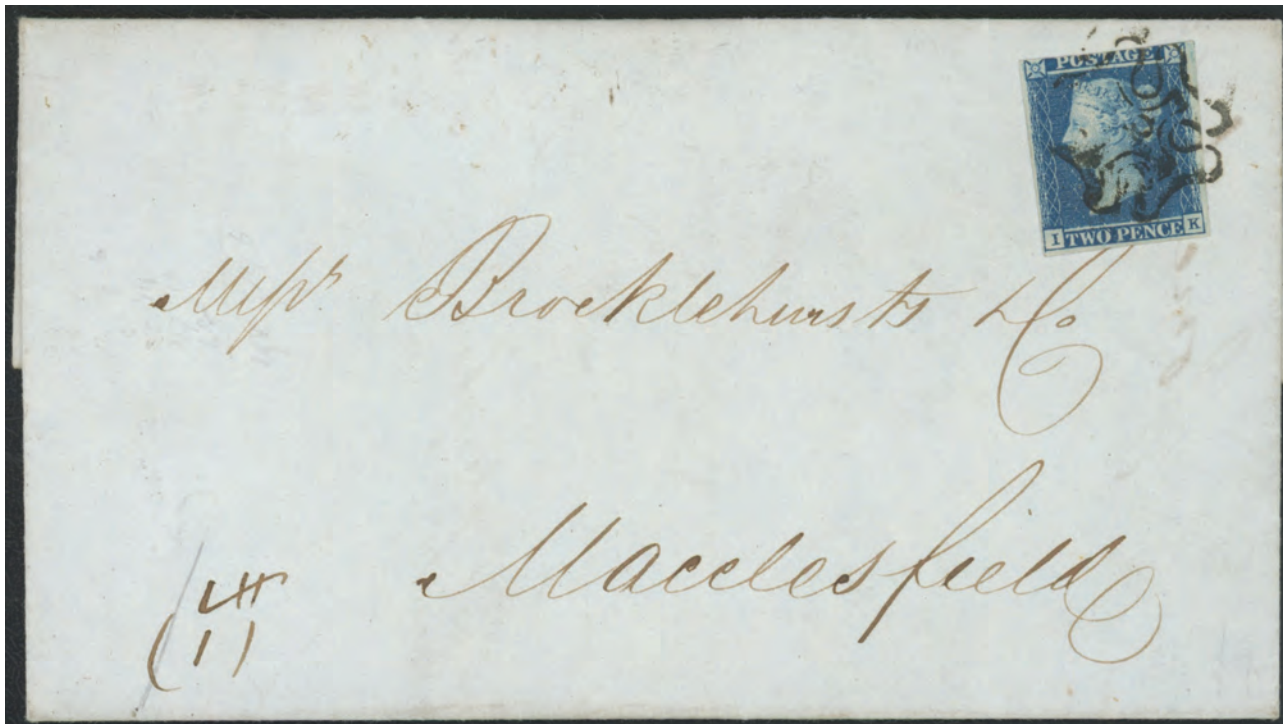 POSTAGE
I TWO PENCE K
Messrs Brocklehursts & Co
Macclesfield